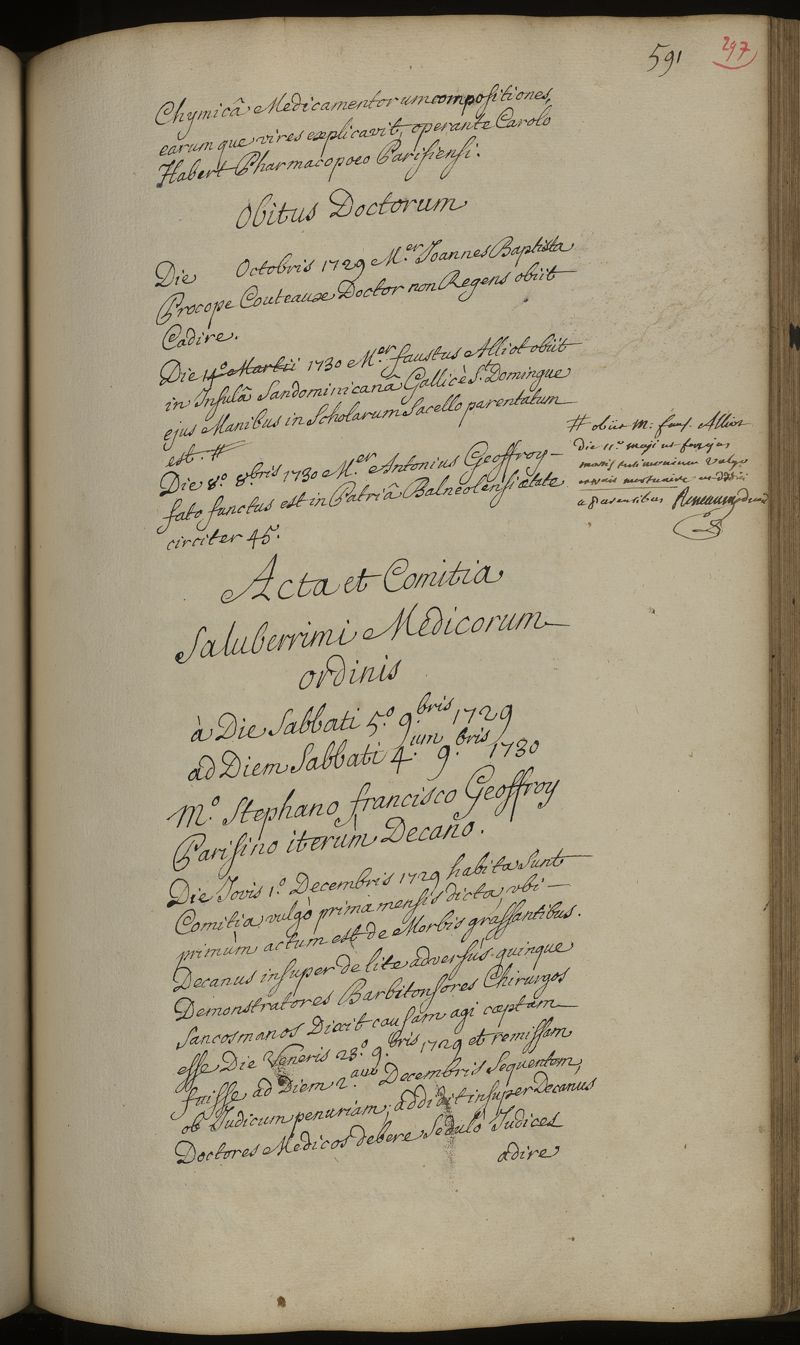 591 297
Chymicâ Medicamentorum compositiones,
earumque vires explicavit, operante Carolo
Habert Pharmacopoeo Parisiensi.
Obitus Doctorum
Die Octobris 1729 M.er Joannes Baptista
Procope Couteaux Doctor non Regens obiit
Cadire.
Die 14.o Martii 1730 M.er faustus Alliot obiit
in Insulâ Sandominicanâ Gallicè S.t Domingue
ejus Manibus in Scholarum Sacello parentatum
est. #
Die 8.o 8.bris 1730 M.er Antonius Geoffroy
fato functus est in Patriâ Balneolensi ætate
circiter 45.
# obiit M. faus. Alliot
Die 11.a maji ut
mortis testimonium vulgo
mortuaire
a parentibus
Acta et Comitia
Saluberrimi Medicorum
ordinis
à Die Sabbati 5.o 9.bris 1729
ad Diem Sabbati 4.um 9.bris 1730
M.o Stephano francisco Geoffroy
Parisino iterùm Decano.
Die Jovis 1.o Decembris 1729 habita sunt
Comitia vulgò prima mensis dicta, ubi
primùm actum est de Morbis grassantibus.
Decanus insuper de lite adversùs quinque
Demonstratores Barbitonsores Chirurgos
Sancosmanos Dixit causam agi cæptam
esse Die Veneris 28.o 9.bris 1729 et remissam
fuisse ad Diem 2.am Decembris Sequentem,
ob Judicum penuriam; addidit insuper Decanus
Doctores Medicos debere Sedulò Judices
adire